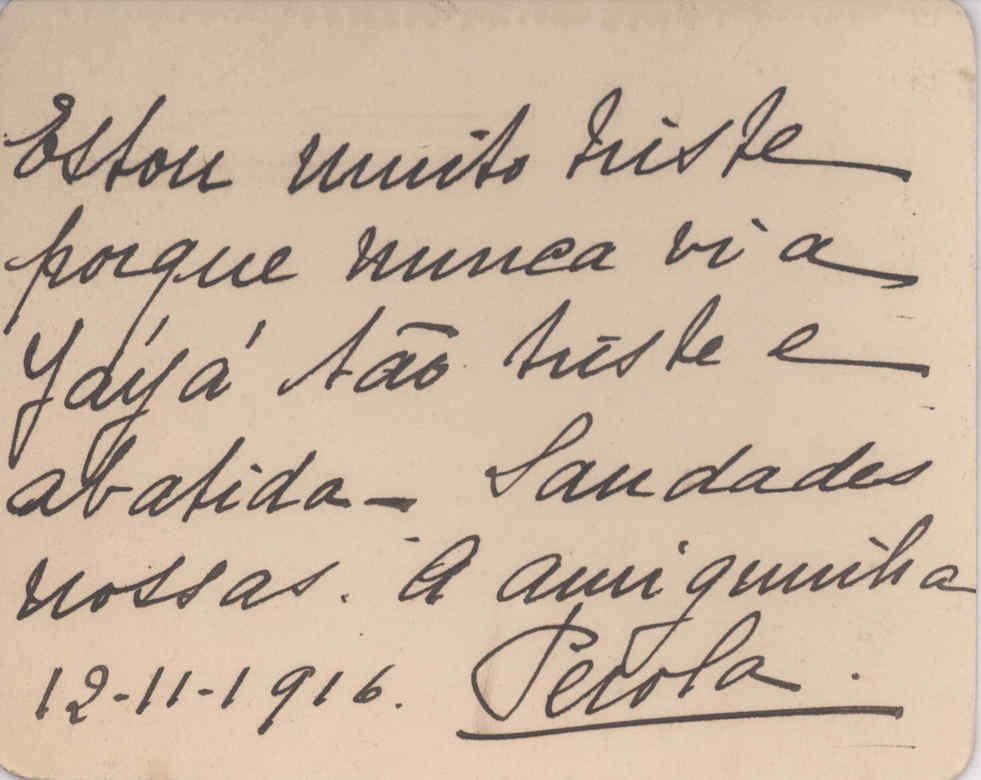 Estou muito triste
porque nunca vi a
Yáyá tão triste e
abatida - Saudades
nossas. A amiguinha
12-11-1916. Perola.